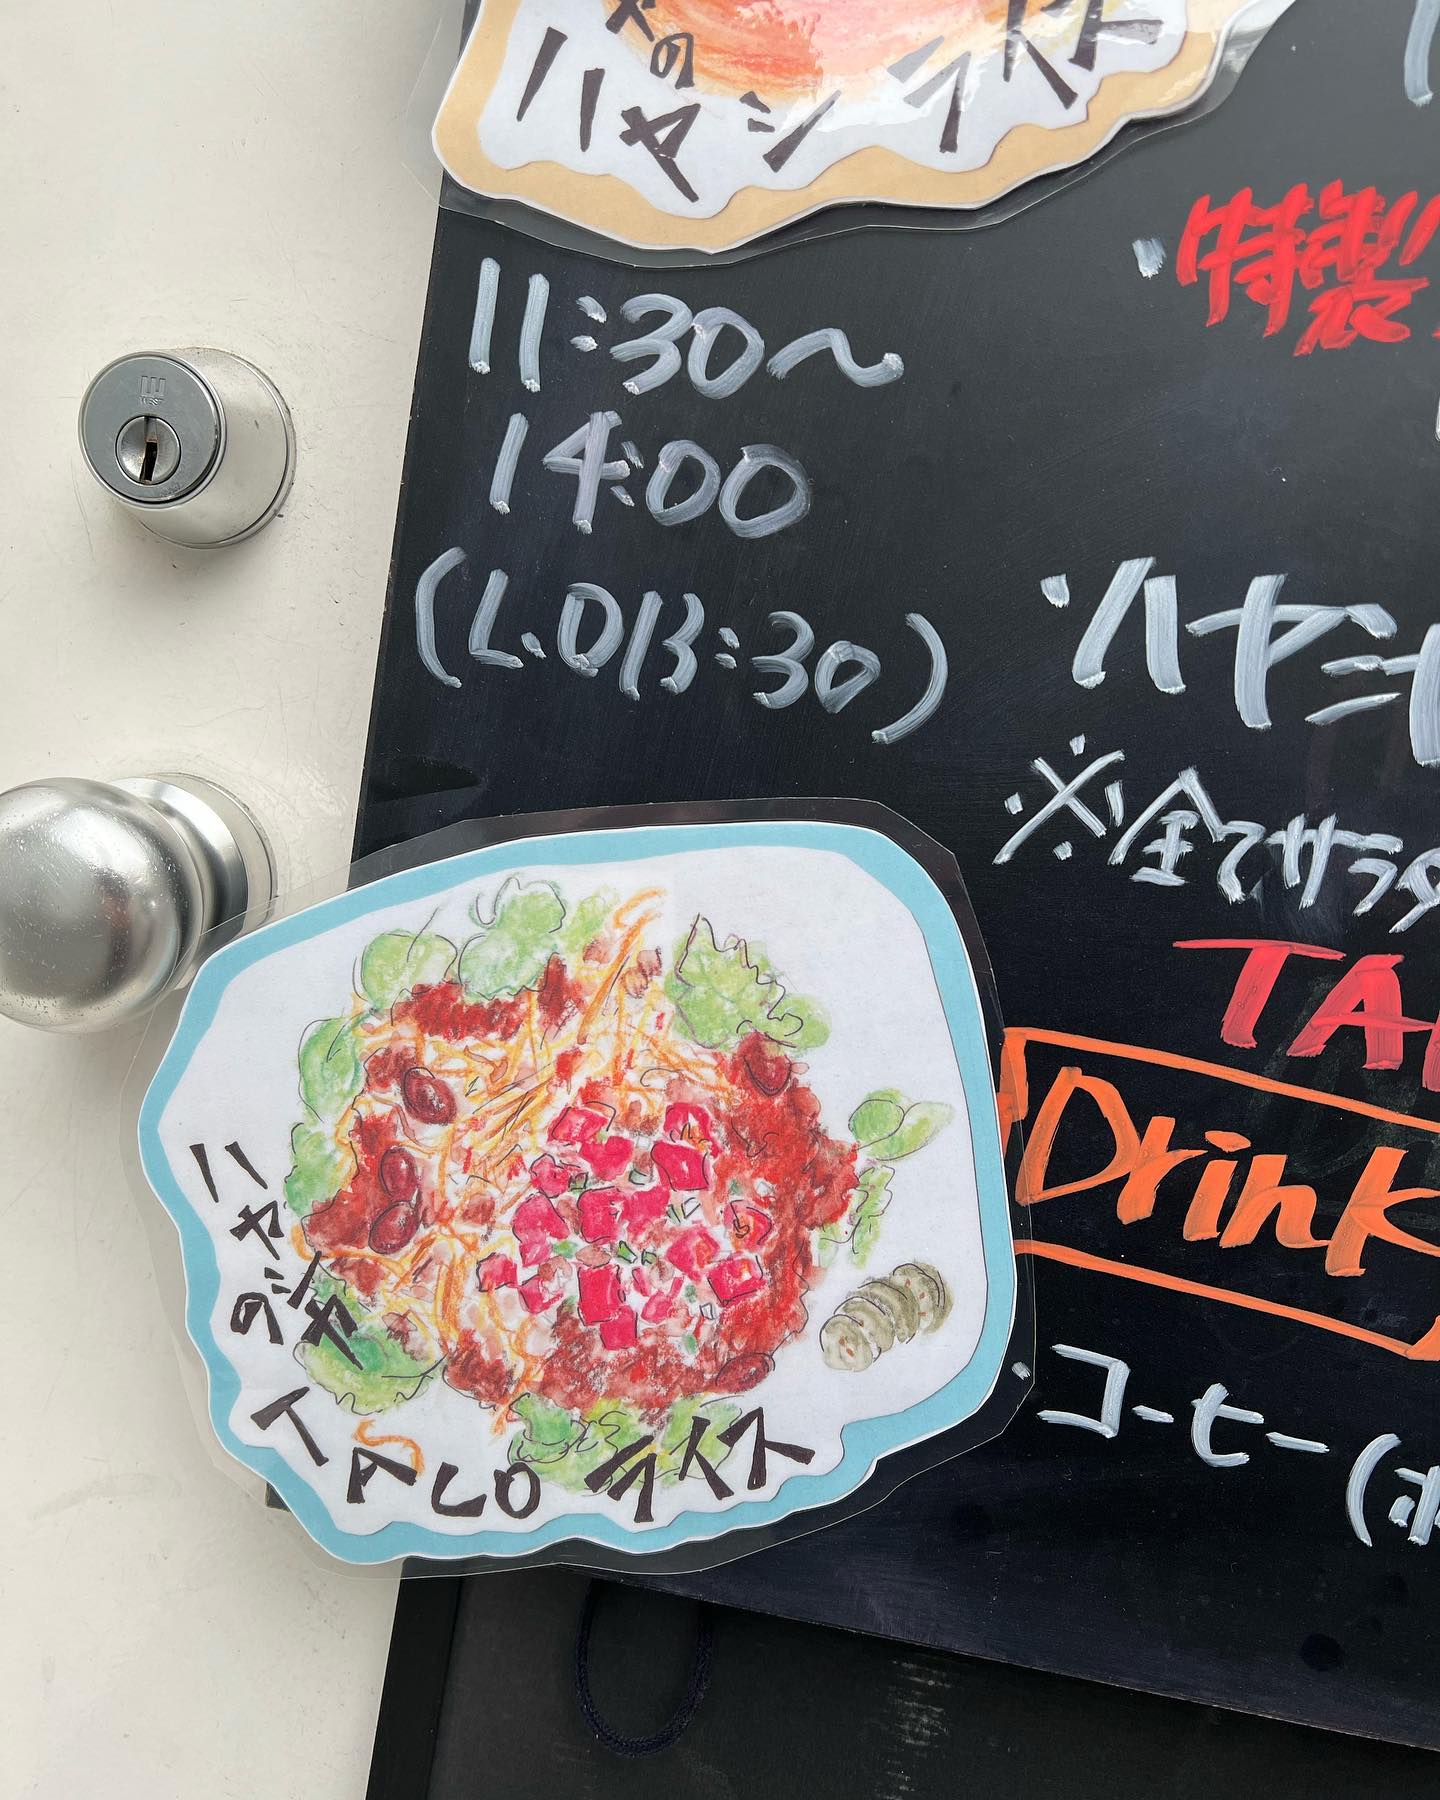 の
ハヤシライス
11:30〜
14:00
(L.O13:30)
特製
・ハヤシ
※全てサラダ
TA
Drink
・コーヒー(ホ
ハヤシヤの
TACOライス
WEST